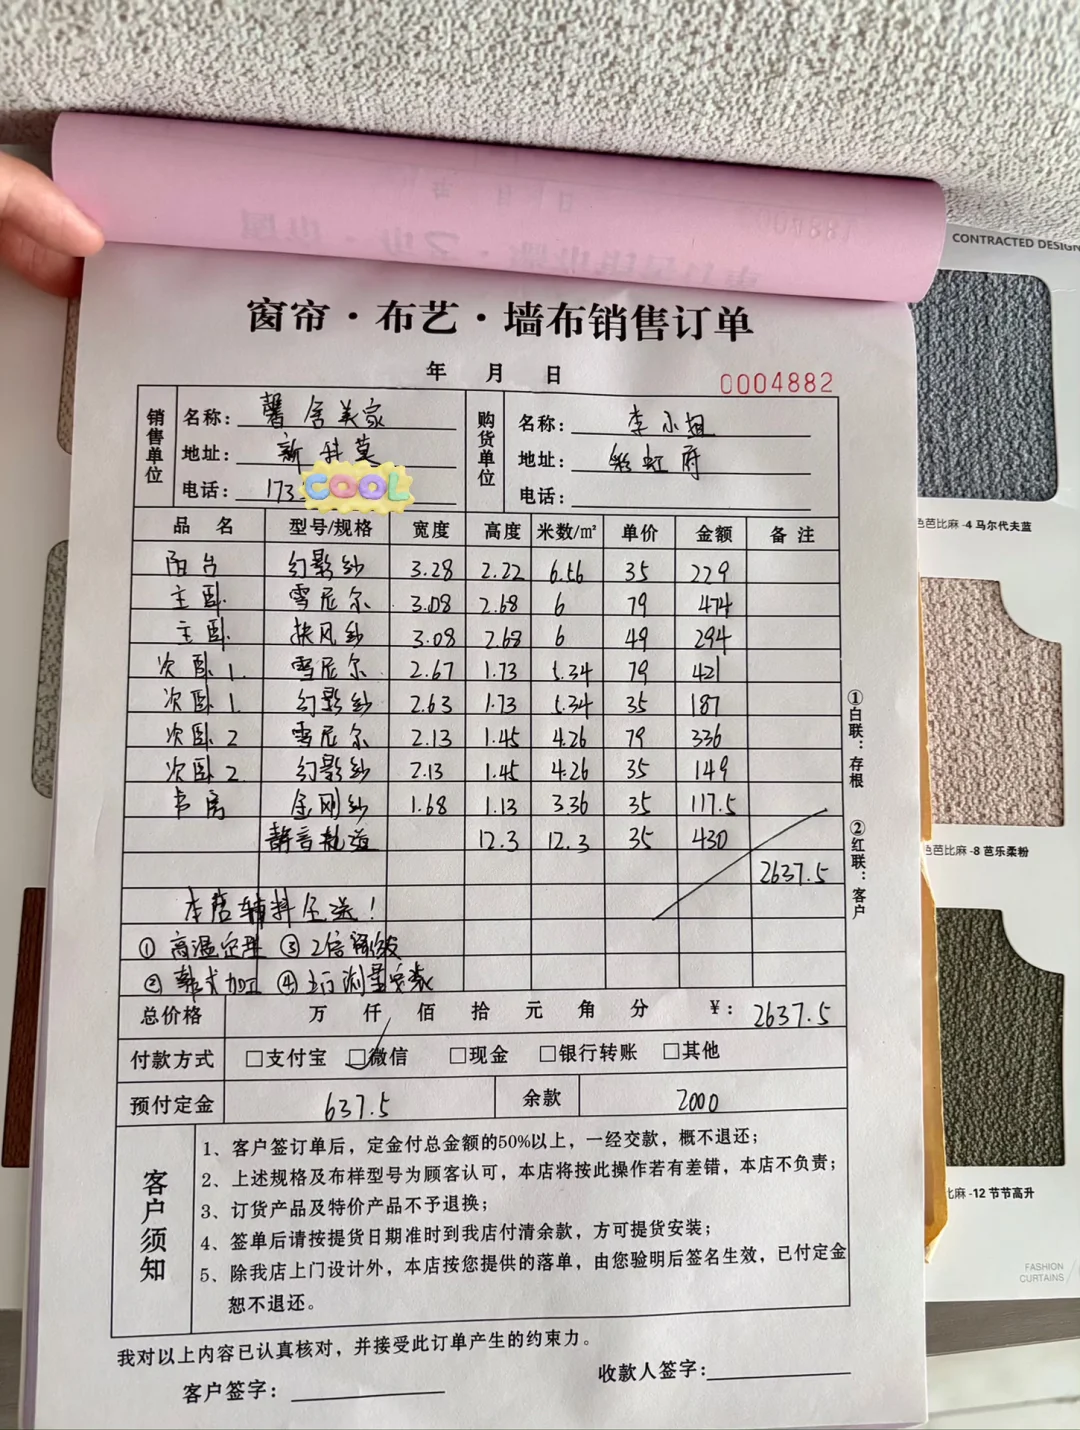 CONTRACTED DESIGN
窗帘·布艺·墙布销售订单
年 月 日
0004882
销售单位 名称: 馨舍美家 购货单位 名称: 李小姐
地址: 新科莫 地址: 彩虹府
电话: 173 COOL 电话:
品名 型号/规格 宽度 高度 米数/m² 单价 金额 备注
阳台 幻影纱 3.28 2.22 6.56 35 229
主卧 雪尼尔 3.08 2.68 6 79 474
主卧 扶风纱 3.08 2.68 6 49 294
次卧1 雪尼尔 2.67 1.73 5.34 79 421
次卧1 幻影纱 2.63 1.73 5.34 35 187
次卧2 雪尼尔 2.13 1.45 4.26 79 336
次卧2 幻影纱 2.13 1.45 4.26 35 149
书房 金刚纱 1.68 1.13 3.36 35 117.5
静音轨道 12.3 12.3 35 430
2637.5
本店辅料全送!
①高温定型 ③2倍褶皱
②韩式加工 ④上门测量安装
总价格 万 仟 佰 拾 元 角 分 ¥: 2637.5
付款方式 □支付宝 □微信 □现金 □银行转账 □其他
预付定金 637.5 余款 2000
客户须知
1、客户签订单后，定金付总金额的50%以上，一经交款，概不退还；
2、上述规格及布样型号为顾客认可，本店将按此操作若有差错，本店不负责；
3、订货产品及特价产品不予退换；
4、签单后请按提货日期准时到我店付清余款，方可提货安装；
5、除我店上门设计外，本店按您提供的落单，由您验明后签名生效，已付定金
恕不退还。
我对以上内容已认真核对，并接受此订单产生的约束力。
客户签字: 收款人签字:
①白联：存根
②红联：客户
色芭比麻-4 马尔代夫蓝
色芭比麻-8 芭乐柔粉
比麻-12 节节高升
FASHION
CURTAINS